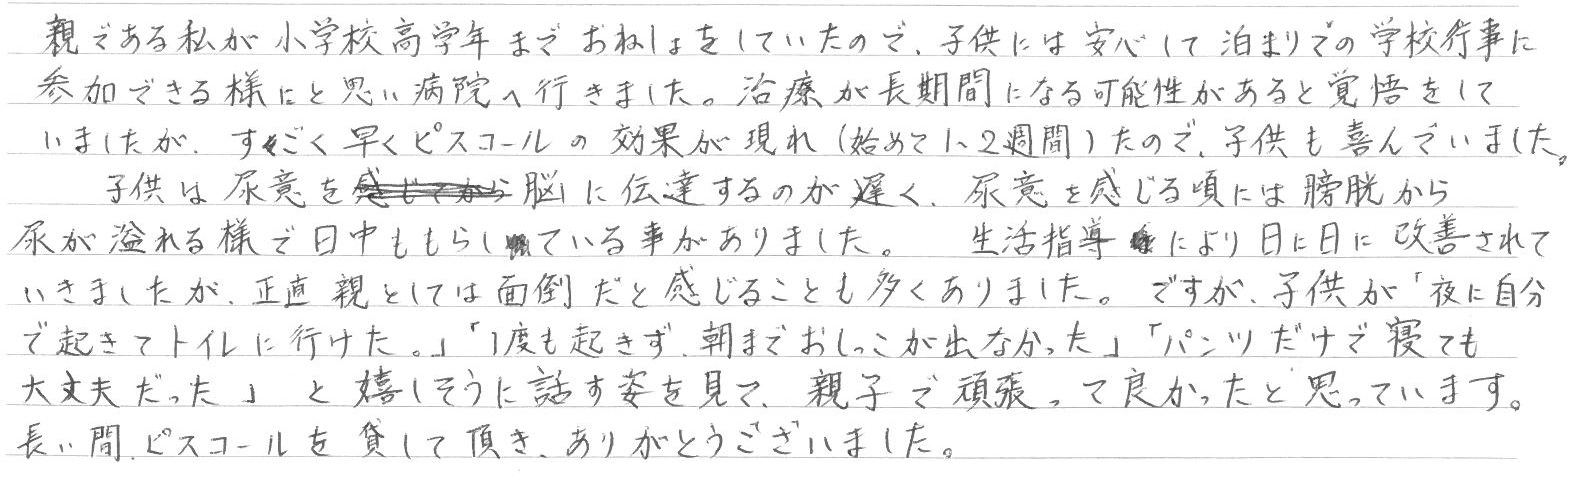 親である私が小学校高学年までおねしょをしていたので、子供には安心して泊まりでの学校行事に
参加できる様にと思い病院へ行きました。治療が長期間になる可能性があると覚悟をして
いましたが、すごく早くピスコールの効果が現れ(始めて1~2週間)たので、子供も喜んでいました。
子供は尿意を脳に伝達するのが遅く、尿意を感じる頃には膀胱から
尿が溢れる様で日中ももらしている事がありました。 生活指導により日に日に改善されて
いきましたが、正直親としては面倒だと感じることも多くありました。ですが、子供が「夜に自分
で起きてトイレに行けた。」「1度も起きず、朝までおしっこが出なかった」「パンツだけで寝ても
大丈夫だった」と嬉しそうに話す姿を見て、親子で頑張って良かったと思っています。
長い間、ピスコールを貸して頂き、ありがとうございました。